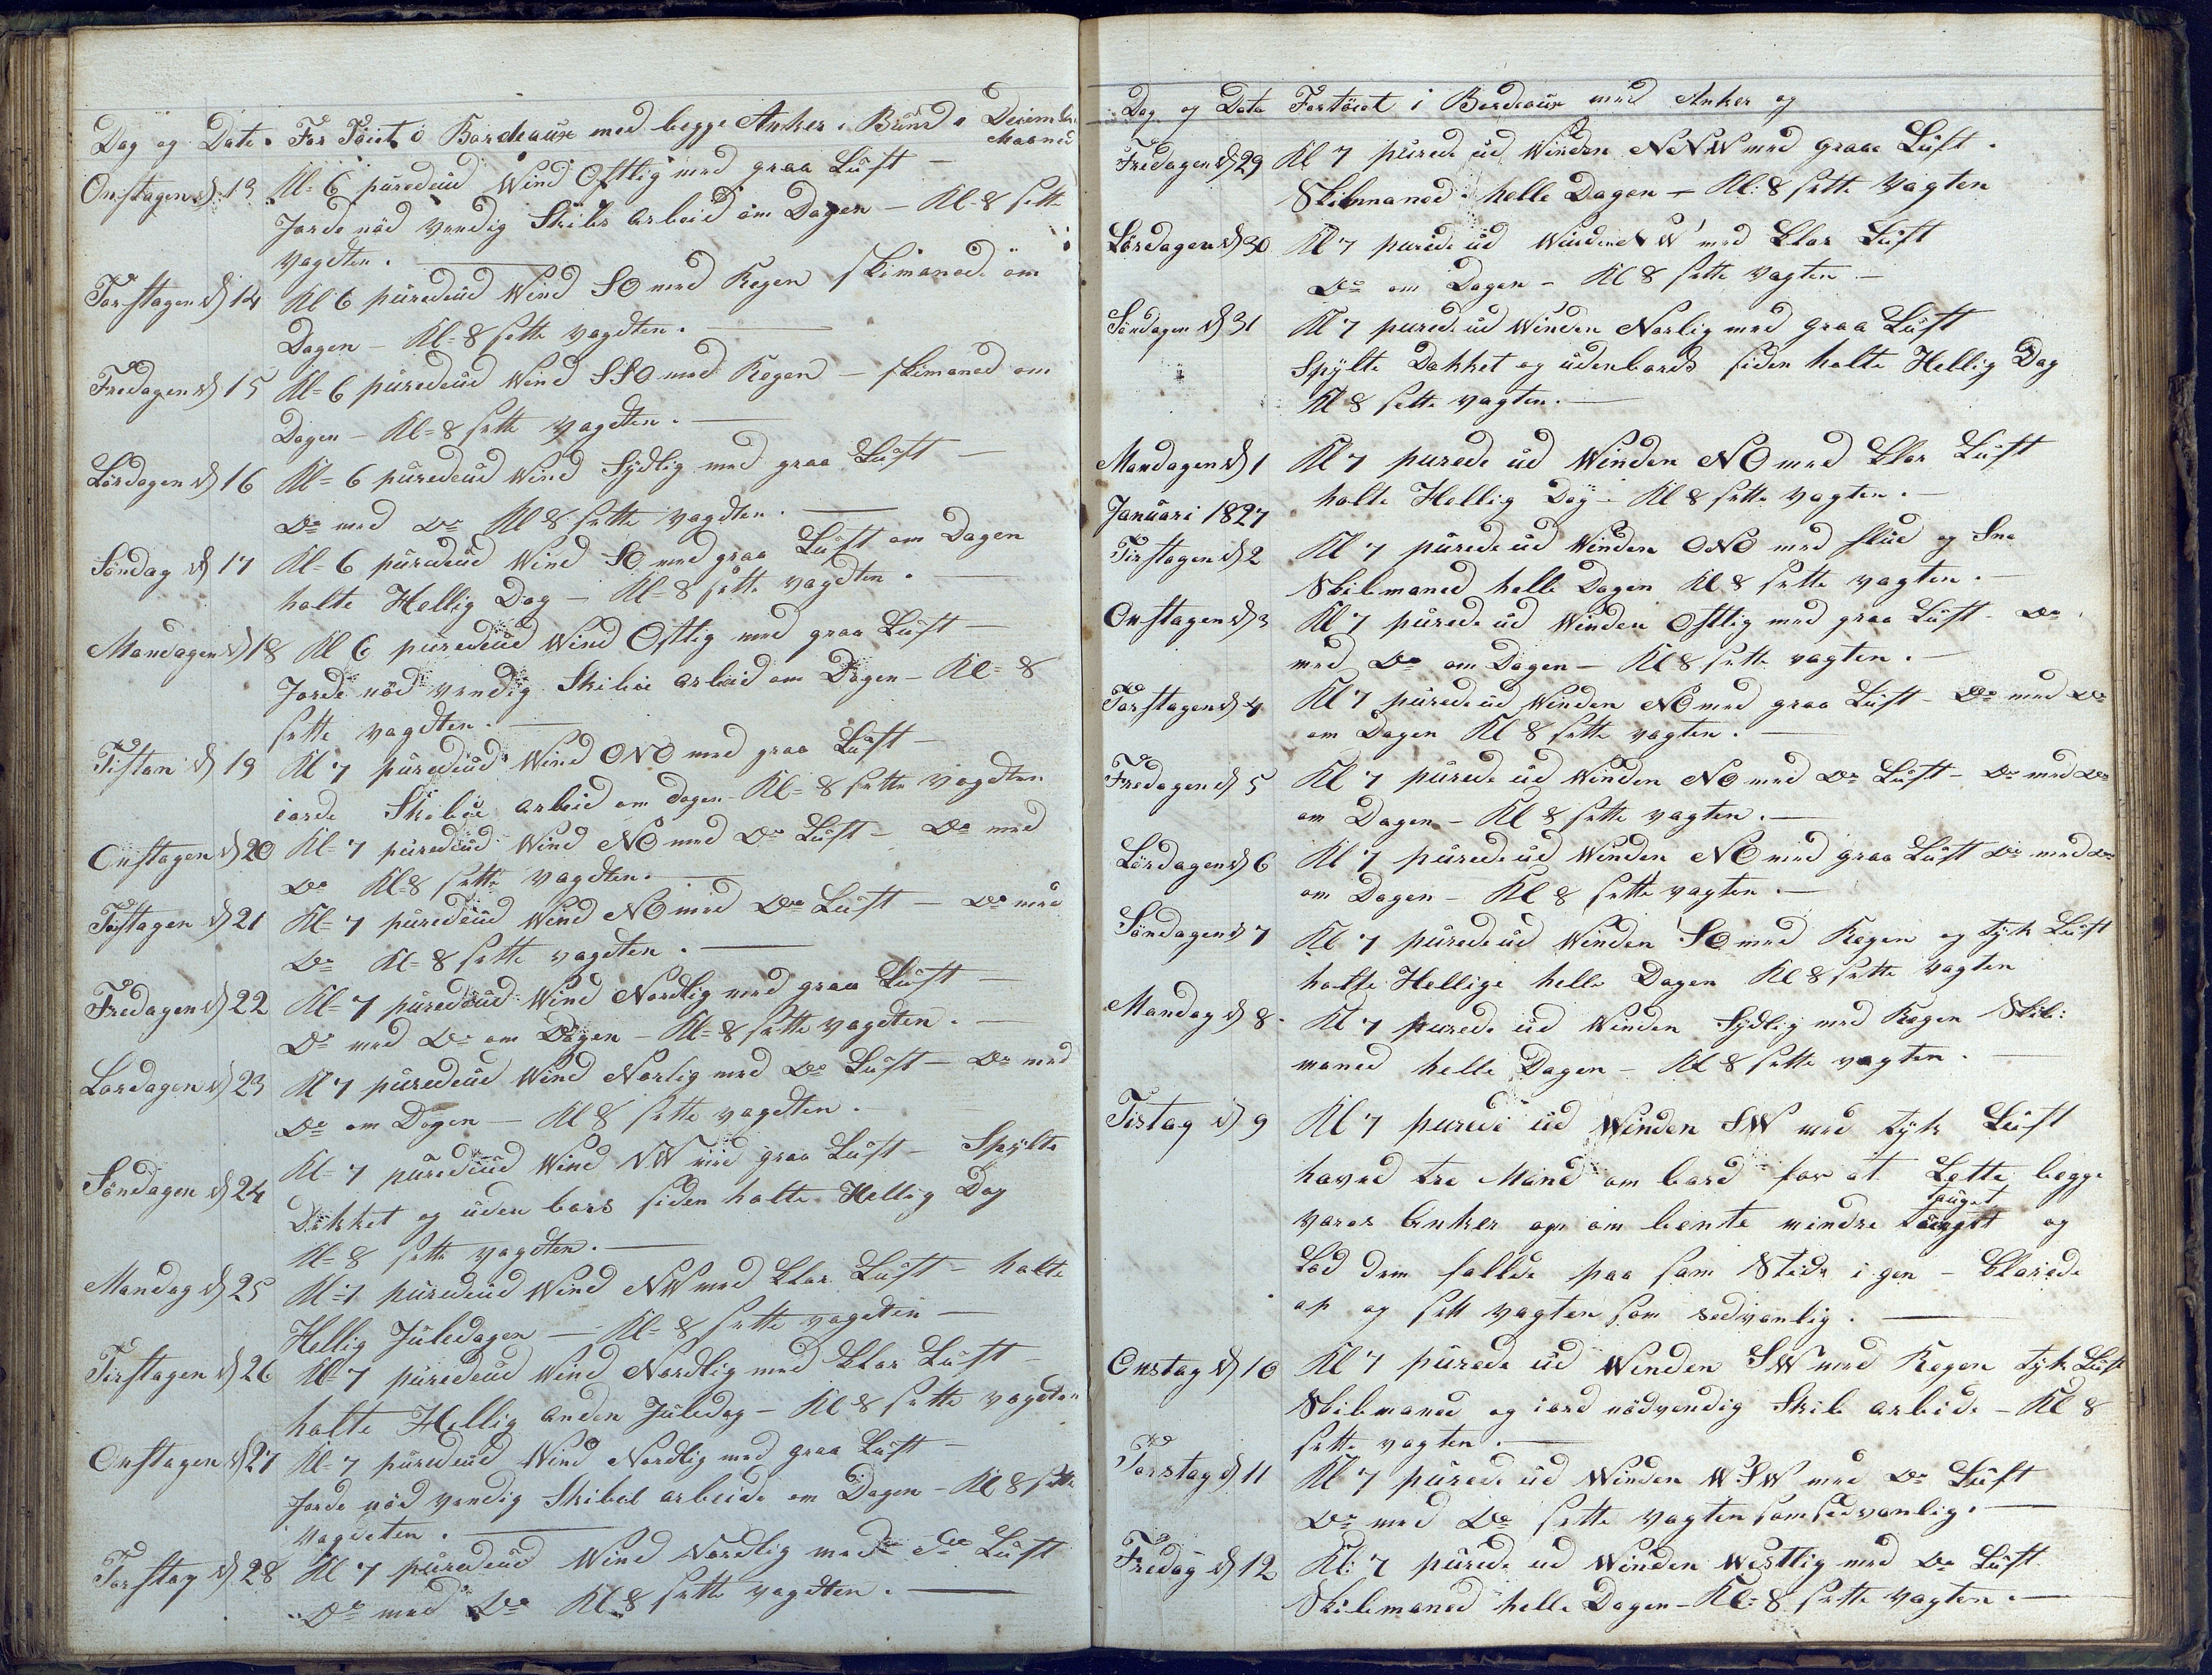 Dag og Dato. For Töiet i Bordeaux med begge Anker i Bund i Decimber Maaned
Onstagen d 13 Kl= 6 püredeüd Wind Ostlig med graa Lüft —
Jorde nöd vendig Skibs arbeid om Dagen — Kl= 8 sette
vagdten. —
Torstagen d 14 Kl 6 püredeüd Wind SO med Regen skimaned om
Dagen — Kl= 8 sette vagdten. —
Fredagen d 15 Kl= 6 püredeüd Wind SSO med Regen — skimaned om
Dagen — Kl= 8 sette vagdten. —
Lördagen d 16 Kl= 6 püredeüd Wind Sydlig med graa Lüft —
Do med Do Kl 8 sette vagdten. —
Söndag d 17 Kl= 6 püredeüd Wind SO med graa Lüft om Dagen
holte Hellig Dag — Kl= 8 sette vagdten. —
Mandagen d 18 Kl 6 püredeüd Wind Ostlig med graa Lüft —
Jorde nöd vendig Skibü arbeid om Dagen — Kl= 8
sette vagdten. —
Tistan d 19 Kl 7 püredeüd Wind ONO med graa Lüft —
iorde Skibü arbeid om dagen — Kl= 8 sette vagdten
Onstagen d 20 Kl= 7 püredeüd Wind NO med Do Lüft — Do med
Do Kl= 8 sette vagdten. —
Torstagen d 21 Kl= 7 püredeüd Wind NO med Do Lüft — Do med
Do Kl= 8 sette vagdten. —
Fredagen d 22 Kl= 7 püredeüd Wind Nordlig med graa Lüft —
Do med Do om Dagen — Kl= 8 sette vagdten. —
Lordagen d 23 Kl 7 püredeüd Wind Norlig med Do Lüft — Do med
Do om Dagen — Kl 8 sette vagdten. —
Söndagen d 24 Kl= 7 püredeüd Wind NW med graa Lüft — Spylte
Dekket og üden bors siden holte Hellig Dag
Kl= 8 sette vagdten. —
Mandag d 25 Kl= 7 püredeüd Wind NW med klar Lüft — holte
Hellig Jüledagen — Kl= 8 sette vagdten —
Tirstagen d 26 Kl= 7 püredeüd Wind Nordlig med klar Lüft —
holte Hellig anden Jüledag — Kl 8 sette vagdten
Onstagen d 27 Kl= 7 püredeüd Wind Nordlig med graa Lüft —
Jorde nöd vendig Skibü arbeide om Dagen — Kl 8 sette
vagdeten. —
Torstag d 28 Kl 7 püredeüd Wind Nordlig med Do Lüft
Do med Do Kl 8 sette vagdten. —
Dag og Dato Fortöiet i Bordeaux med Anker og
Fredagen d 29 Kl 7 purede ud Winden NoNW med graae Lüft.
Skibmaned helle Dagen — Kl: 8 sette Vagten
Lördagen d 30 Kl 7 purede üd Winden NW med klar Lüft
Do om Dagen — Kl 8 sette vagten —
Söndagen d 31 Kl 7 purede üd Winden Norlig med graa Lüft
Spylte Dekket og üdenbords siden holte Hellig Dag
Kl 8 sette vagten. —
Mandagen d 1 Kl 7 purede üd Winden NO med klar Lüft
Januari 1827 holte Hellig Dag — Kl 8 sette vagten. —
Tirstagen d 2 Kl 7 pürede üd Winden ONO med slüd og Sne
Skibmaned helle Dagen Kl 8 sette vagten. —
Onstagen d 3 Kl 7 pürede üd Winden Ostlig med graa Lüft — Do
med Do om Dagen — Kl 8 sette vagten. —
Torstagen d 4 Kl 7 pürede üd Winden NO med graa Lüft — Do med Do
om Dagen Kl 8 sette vagten. —
Fredagen d 5 Kl 7 pürede üd Winden NO med Do Lüft — Do med Do
om Dagen — Kl 8 sette vagten. —
Lördagen d 6 Kl 7 pürede üd Winden NO med graa Lüft Do med Do
om Dagen — Kl 8 sette vagten. —
Söndagen d 7 Kl 7 pürede üd Winden SO med Regen og tyk Lüft
holte Hellige helle Dagen Kl 8 sette vagten
Mandag d 8. Kl 7 purede üd Winden Sydlig med Regen Skib:
maned helle Dagen — Kl 8 sette vagten. —
Tistag d 9 Kl 7 purede üd Winden SW med tyk Lüft
haved tre Mand om bord for at Lette begge
vores Anker op om bente mindre taüget og
Lod dem fallde paa sam Stede i gen — klarede
op og sett vagten som sedvanlig. —
Onstag d 10 Kl 7 pürede üd Winden SW med Regen tyk Lüft
Skibmaned og iord nödvendig Skib arbide — Kl 8
sette vagten. —
Torstag d 11 Kl 7 pürede üd Winden W.SW med Do Lüft
Do med Do sette vagten som sedvanlig. —
Fredag d 12 Kl: 7 pürede ud Winden Westlig med Do Lüft
Skibmaned helle Dagen — Kl= 8 sette vagten. —